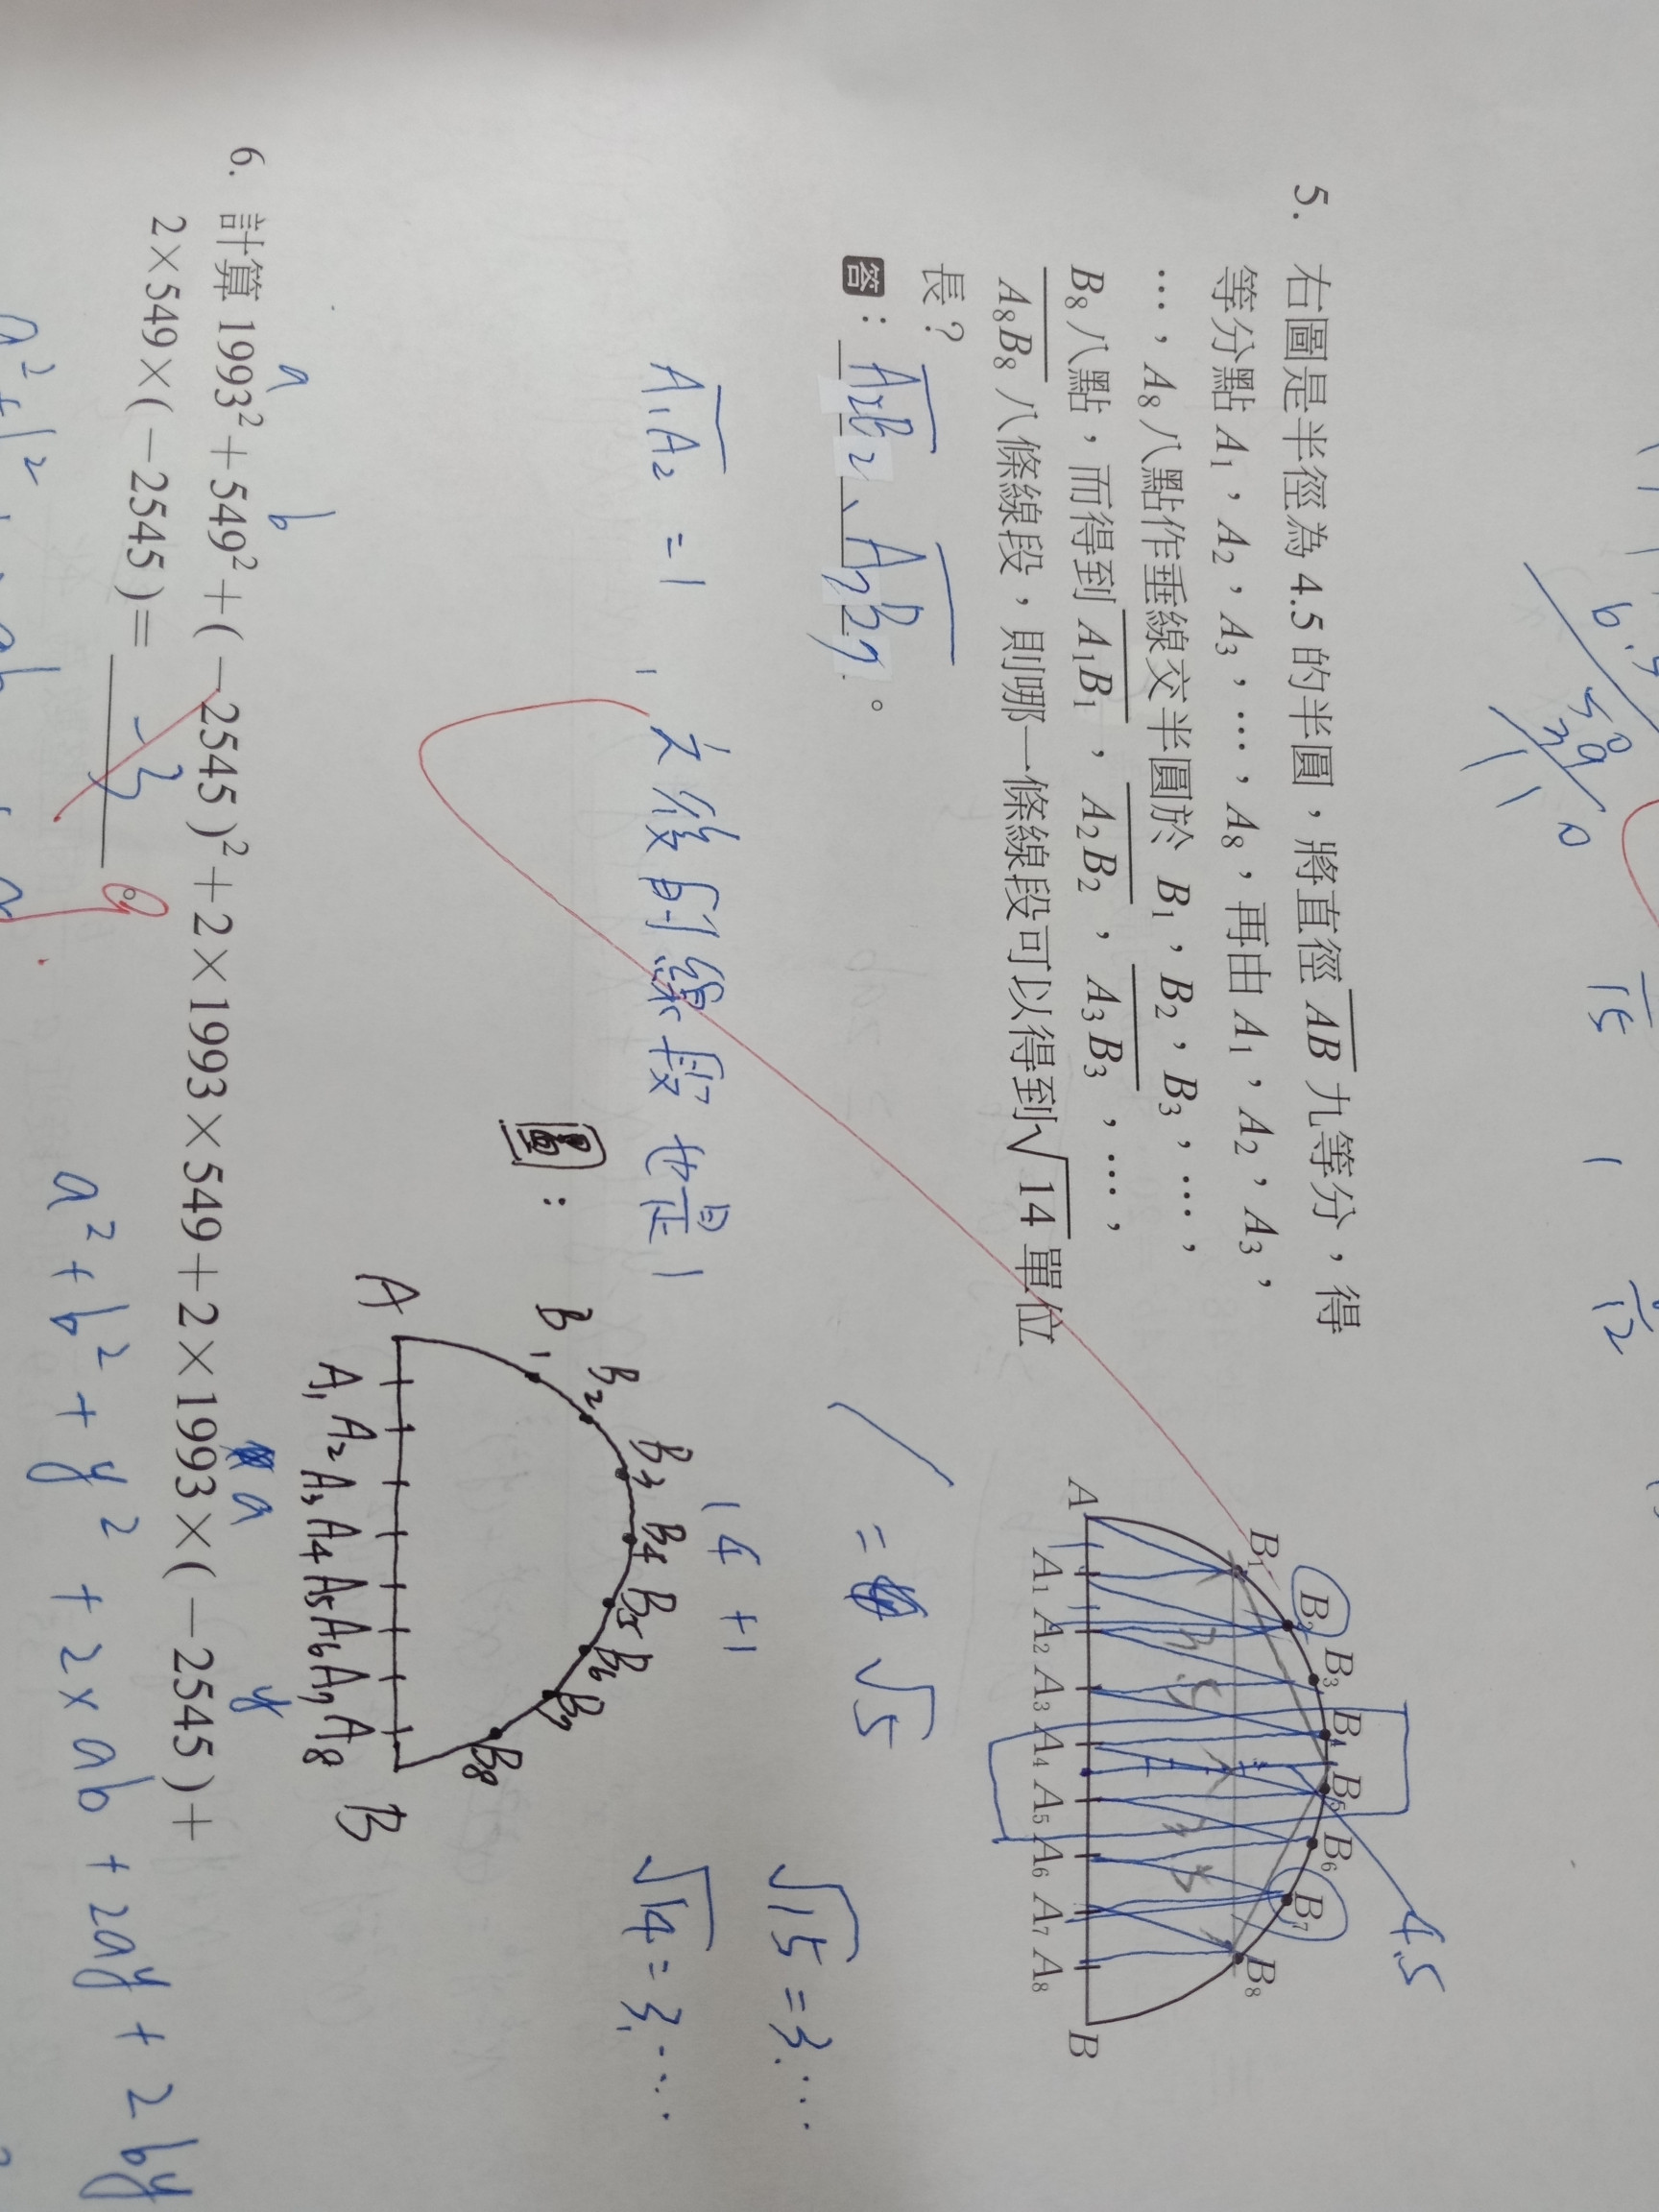 5. 右圖是半徑為 4.5 的半圓，將直徑 AB 九等分，得
等分點 A₁，A₂，A₃，…，A₈，再由 A₁，A₂，A₃，
…，A₈ 八點作垂線交半圓於 B₁，B₂，B₃，…，
B₈ 八點，而得到 A₁B₁，A₂B₂，A₃B₃，…，
A₈B₈ 八條線段，則哪一條線段可以得到√14 單位
長？
答：A₂B₂、A₇B₇。
A B₁ B₂ B₃ B₄ B₅ B₆ B₇ B₈ B
A₁ A₂ A₃ A₄ A₅ A₆ A₇ A₈
4.5
= √5
A₁A₂ = 1，之後的線段也是1
14 +1
√15 = 3.…
√14 = 3.…
圖：
B₁ B₂ B₃ B₄ B₅ B₆ B₇ B₈
A A₁ A₂ A₃ A₄ A₅ A₆ A₇ A₈ B
a b a y
6. 計算 1993²+549²+(−2545)²+2×1993×549+2×1993×(−2545)+
2×549×(−2545)= -3
9
a²+b²+y² +2×ab+2ay+2by